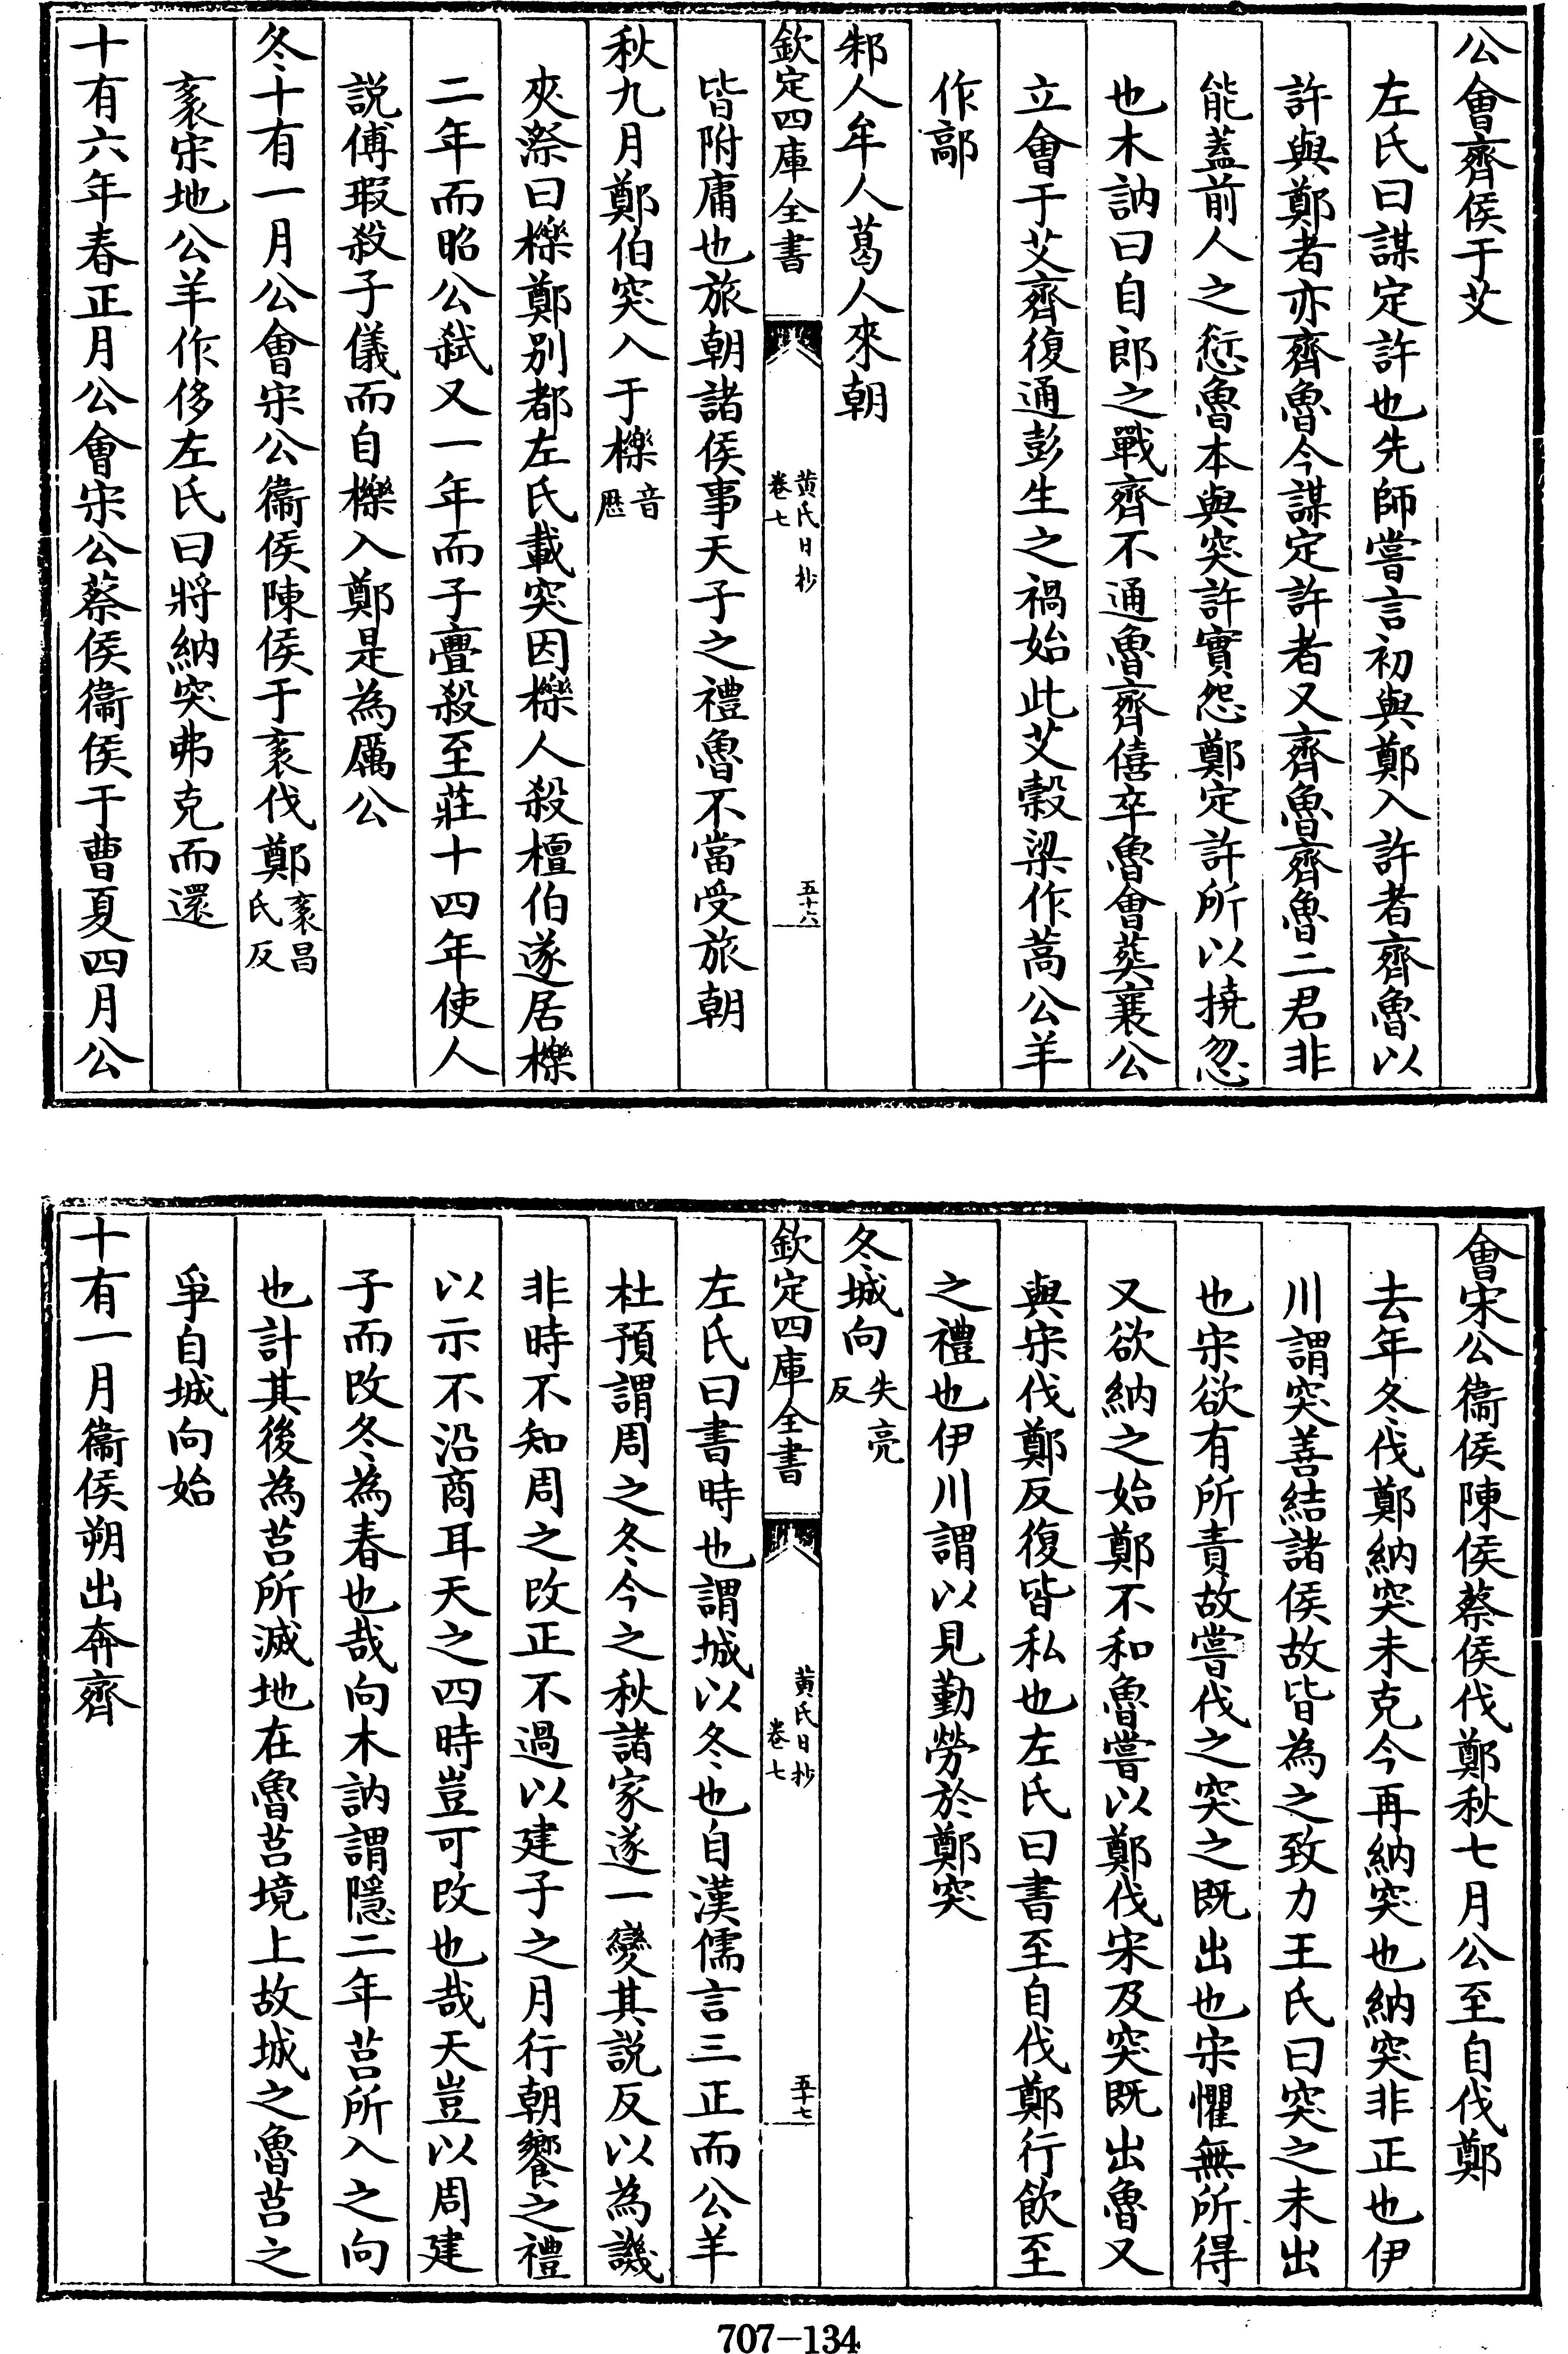 公會齊侯于艾
左氏曰謀定許也先師嘗言初與鄭入許者齊魯以
許與鄭者亦齊魯今謀定許者又齊魯齊魯二君非
能蓋前人之愆魯本與突許實怨鄭定許所以撓忽
也木訥曰自郎之戰齊不通魯齊僖卒魯會葬襄公
立會于艾齊復通彭生之禍始此艾穀梁作蒿公羊
作鄗
邾人牟人葛人來朝
欽定四庫全書
黄氏日抄
卷七
五十六
皆附庸也旅朝諸侯事天子之禮魯不當受旅朝
秋九月鄭伯突入于櫟音歴
夾漈曰櫟鄭別都左氏載突因櫟人殺檀伯遂居櫟
二年而昭公弑又一年而子亹殺至莊十四年使人
説傅瑕殺子儀而自櫟入鄭是為厲公
冬十有一月公會宋公衞侯陳侯于袲伐鄭袲昌氏反
袲宋地公羊作侈左氏曰將納突弗克而還
十有六年春正月公會宋公蔡侯衞侯于曹夏四月公
會宋公衞侯陳侯蔡侯伐鄭秋七月公至自伐鄭
去年冬伐鄭納突未克今再納突也納突非正也伊
川謂突善結諸侯故皆為之致力王氏曰突之未出
也宋欲有所責故嘗伐之突之既出也宋懼無所得
又欲納之始鄭不和魯嘗以鄭伐宋及突既出魯又
與宋伐鄭反復皆私也左氏曰書至自伐鄭行飲至
之禮也伊川謂以見勤勞於鄭突
冬城向失亮反
欽定四庫全書
黄氏日抄
卷七
五十七
左氏曰書時也謂城以冬也自漢儒言三正而公羊
杜預謂周之冬今之秋諸家遂一變其説反以為譏
非時不知周之改正不過以建子之月行朝饗之禮
以示不沿商耳天之四時豈可改也哉天豈以周建
子而改冬為春也哉向木訥謂隱二年莒所入之向
也計其後為莒所滅地在魯莒境上故城之魯莒之
爭自城向始
十有一月衞侯朔出奔齊
707-134